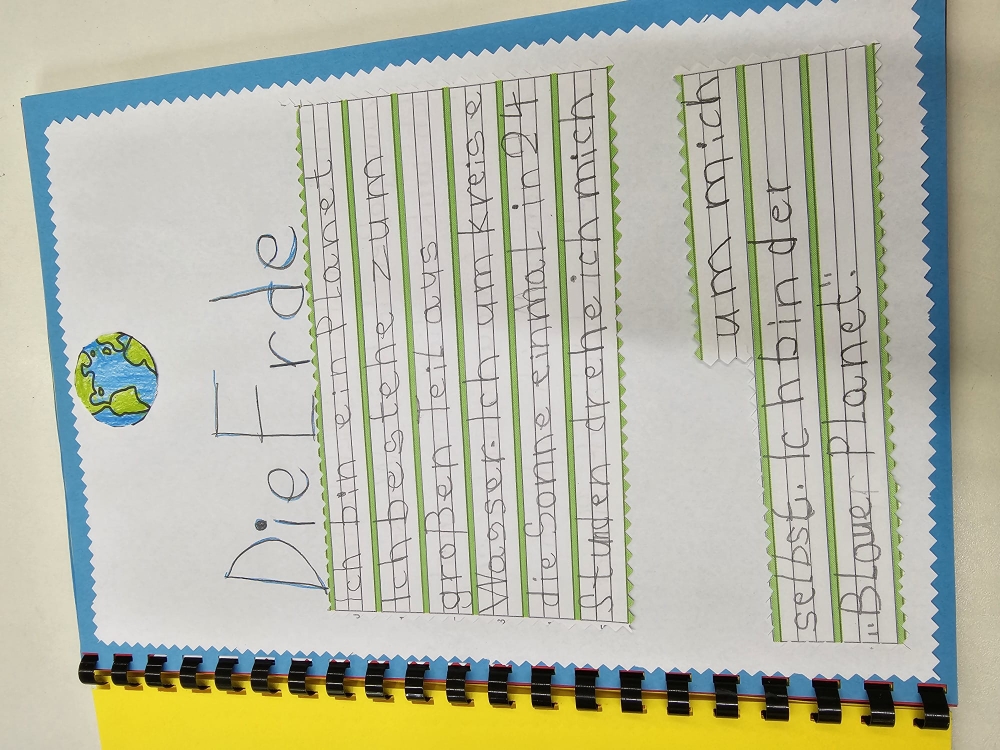 Die Erde
Ich bin ein Planet
Ich bestehe zum
großen Teil aus
Wasser. Ich umkreise
die Sonne einmal in 24
Stunden drehe ich mich
um mich
selbst. Ich bin der
„Blauer Planet".